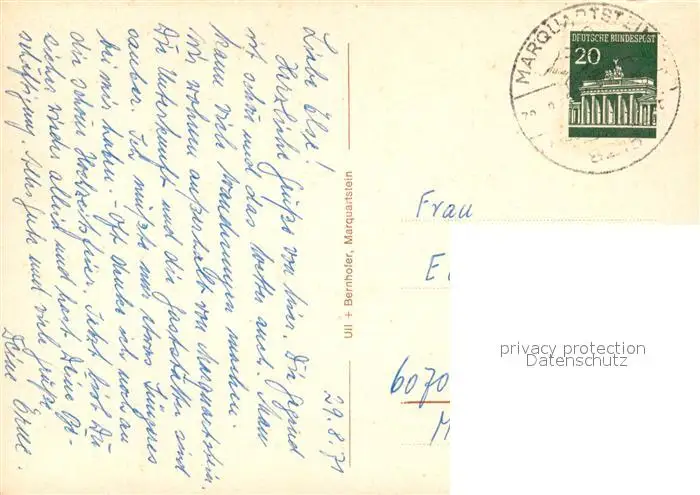 29.8.71
Liebe Else!
Herzliche Grüße von hier. Die Gegend
ist schön und das Wetter auch. Man
kann viel Wanderungen machen.
Wir wohnen außerhalb von Marquartstein.
Die Unterkunft und die Gaststätten sind
sauber. Ich müßte nur etwas Jüngeres
bei mir haben. - Oft denke ich noch an
die schöne Hochzeitsfeier. Jetzt bist Du
sicher wieder allein und hast Deine Be-
schäftigung. Alles Gute und viele Grüße
Deine Erne.
Ull + Bernhofer, Marquartstein
MARQUARTSTEIN
DEUTSCHE BUNDESPOST
20
Frau
E
6070
M
privacy protection
Datenschutz